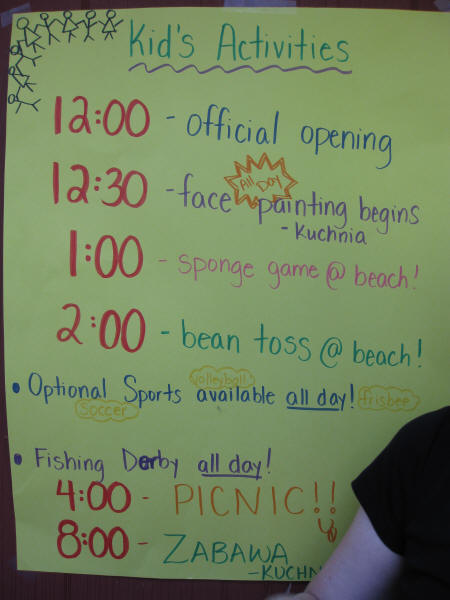 Kid's Activities
12:00 - official opening
All Day
12:30 - face painting begins
- Kuchnia
1:00 - sponge game @ beach!
2:00 - bean toss @ beach!
volleyball
• Optional Sports available all day! frisbee
soccer
• Fishing Derby all day!
4:00 - PICNIC!!
8:00 - ZABAWA